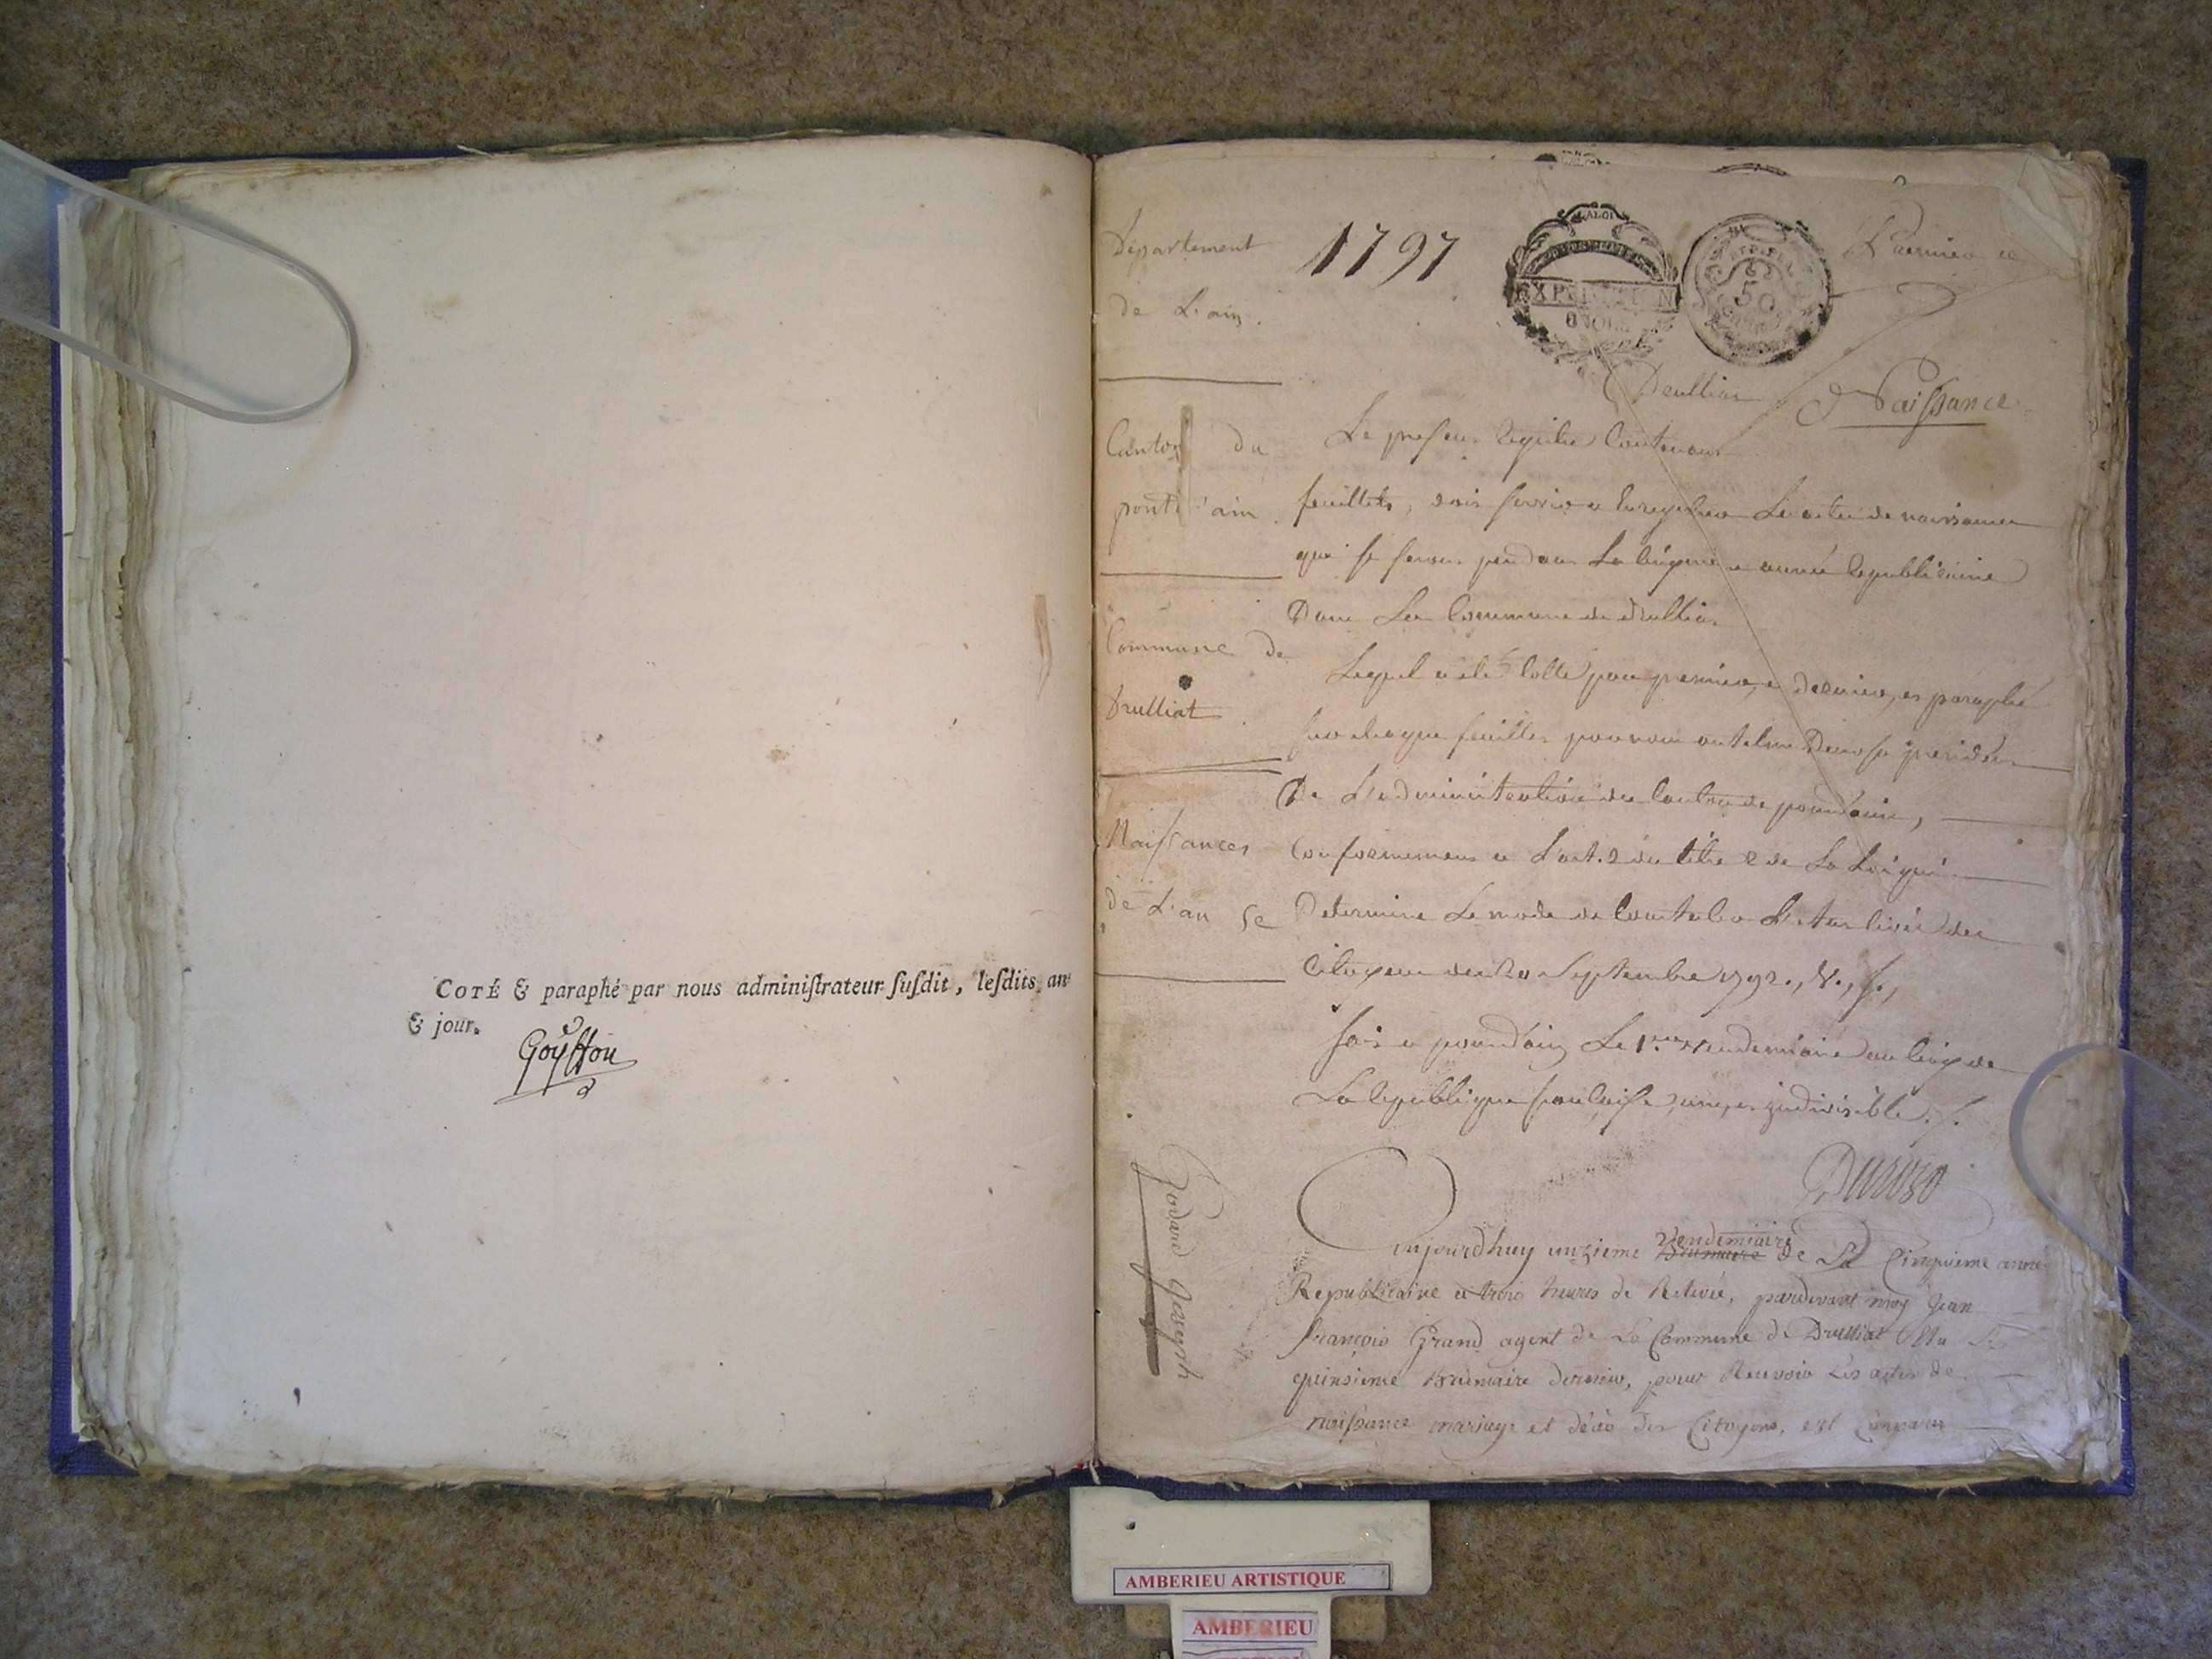 COTÉ & paraphé par nous adminiſtrateur ſuſdit, leſdits an
& jour.
Goyffon
Département
de L'ain.
Canton du
pont d'ain.
Commune de
Drulliat
Naissances
de L'an 5e
Godard Joseph
1797
LA LOI
EXPEDITION
50
Premier
Drulliat
Naissance
Le present Registre Contenant
feuillets, doit servir a Enregistrer Les actes de naissances
qui se feront pendant La cinquieme année Republicaine
Dans La Commune de drulliat
Lequel a été Cotté par premier, et dernier, et paraphé
sur chaque feuillet par nous antelme Duroso president
De L'administration du Canton de pondain,
Conformement a L'art. 2 du titre 2 de La Loi qui
Determine Le mode de Constater L'etat civil des
Citoyens du 20 Septembre 1792., V., S.,
fait a pondain Le 1er vendemiaire an cinq de
La Republique francaise, une, et indivisible ./.
Duroso
Aujourdhuy unzieme Brumaire Vendemiaire de La Cinquieme année
Republicaine a trois heures de Relevée, pardevant moy Jean
françois Grand agent de La Commune de Drulliat Elu Le
quinsieme Brumaire dernier, pour Recevoir Les actes de
naissance mariage et décés des Citoyens, est Comparu
AMBERIEU ARTISTIQUE
AMBERIEU